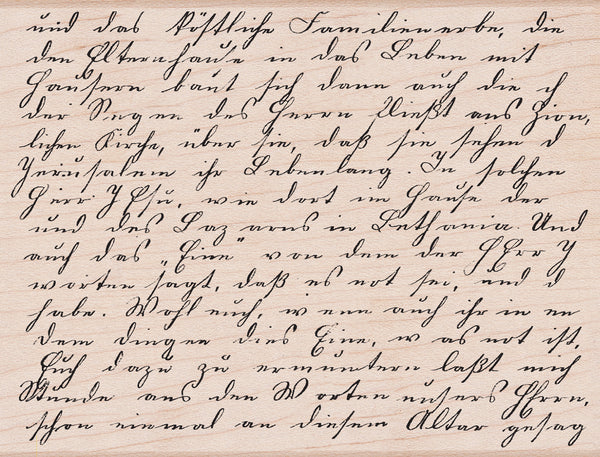 und das köstliche Familienerbe, die
den Elternhause in das Leben mit
Hausern baut sich dann auch die
der Segen des Herrn fließt aus Zion,
lichen Kirche, über sie, daß sie sehen d
Jerusalem ihr Lebenlang. In solchen
Herr JEsu, wie dort im Hause der
und des Lazarus in Bethania. Und
auch das „Eine" von dem der HErr J
worten sagt, daß es not sei, und d
habe. Wohl euch, wenn auch ihr in en
dem dingen dies Eine, was not ist,
Euch dazu zu ermuntern laßt mich
Stunde aus den Worten unsers HErrn,
schon einmal an diesem Altar gesag